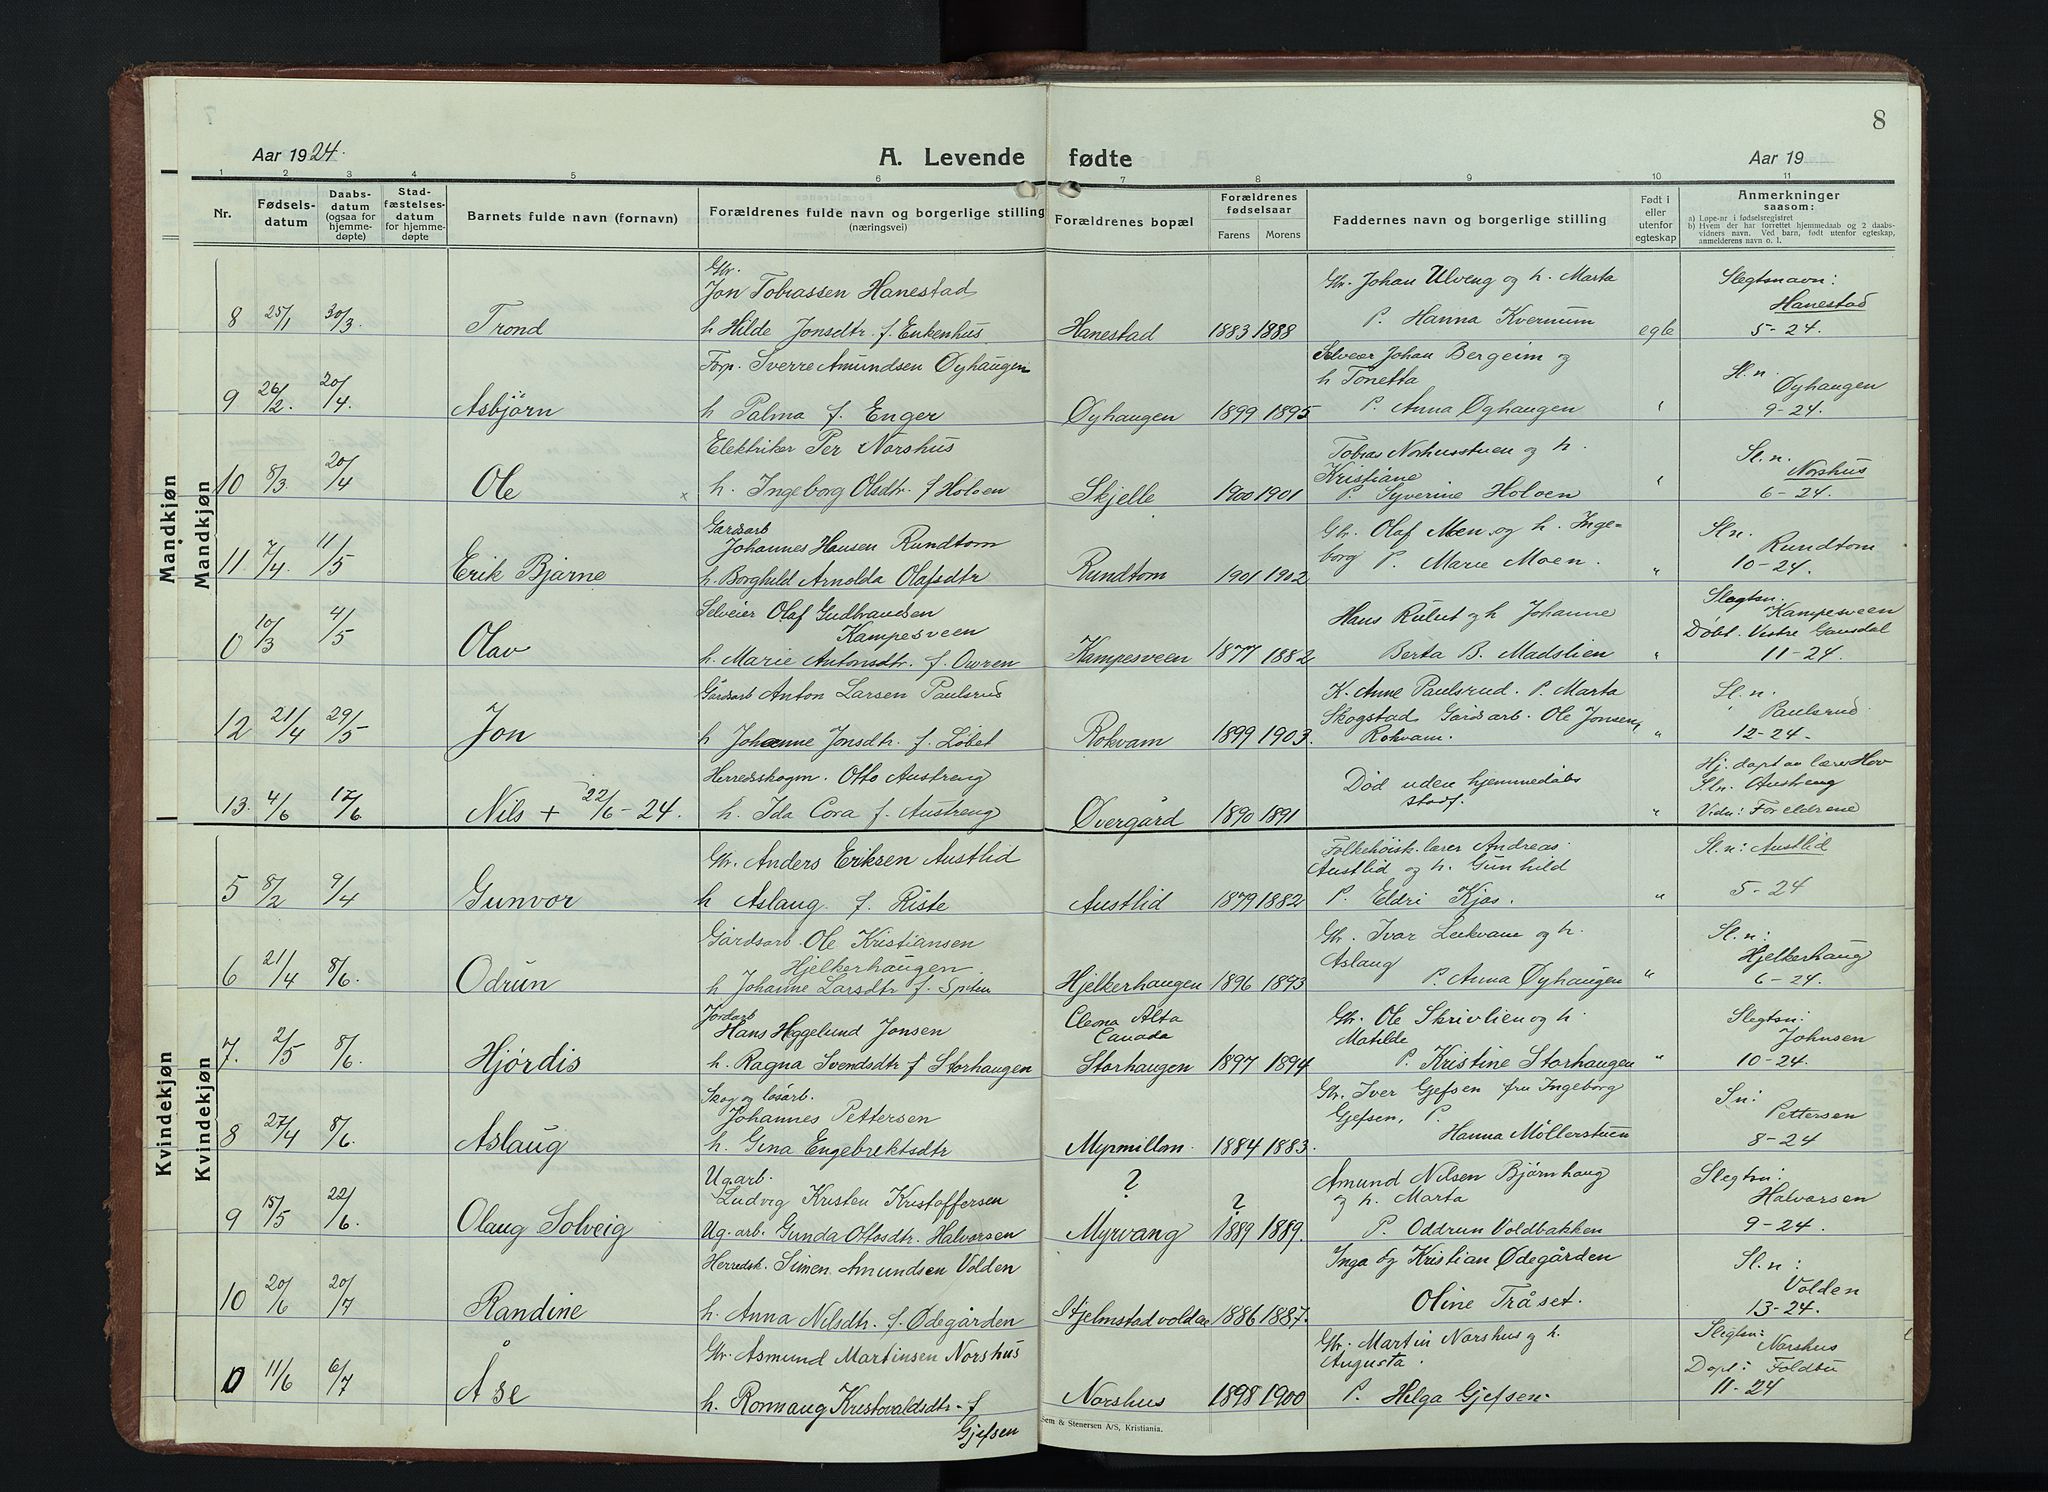 8
Aar 1924.
A. Levende fødte
Aar 19
1 2 3 4 5 6 7 8 9 10 11
Nr.
Fødsels-
datum
Daabs-
datum
(ogsaa for
hjemme-
døpte)
Stad-
fæstelses-
datum
for hjemme-
døpte
Barnets fulde navn (fornavn)
Forældrenes fulde navn og borgerlige stilling
(næringsvei)
Forældrenes bopæl
Forældrenes
fødselsaar
Farens Morens
Faddernes navn og borgerlige stilling
Født i
eller
utenfor
egteskap
Anmerkninger
saasom:
a) Løpe-nr i fødselsregistret
b) Hvem der har forrettet hjemmedaab og 2 daabs-
vidners navn. Ved barn, født utenfor egteskap,
anmelderens navn o. l.
Mandkjøn
Mandkjøn
8 25/1 30/3 Trond
Gbr.
Jon Tobiassen Hanestad
h Hilde Jonsdtr. f. Enkenhus.
Hanestad 1883 1888
Gbr. Johan Ulveng og h. Marta
P. Hanna Kvernum
egte
Slegtsnavn:
Hanestad
5-24.
9 26/2. 20/4 Asbjörn
Forp. Sverre Amundsen Øyhaugen
h Palma f. Enger
Øyhaugen 1899 1895
Selveier Johan Bergeim og
h Tonetta
P. Anna Øyhaugen
"
Sl. n.
Øyhaugen
9-24.
10 8/3. 20/4 Ole
Elektriker Per Norshus
x h. Ingeborg Olsdtr. f Holoen
Skjelle 1900 1901
Tobias Norhusstuen og h.
Kristiane
P. Syverine Holoen
"
Sl. n.
Norshus
6-24.
11. 7/4. 11/5 Erik Bjarne
Gardsarb
Johannes Hansen Rundtom
h. Borghild Arnolda Olafsdtr
Rundtom 1901 1902
Gbr. Olaf Moen og h. Inge-
borg P. Marie Moen.
"
Sln.
Rundtom
10-24.
0 10/3 4/5 Olav
Selveier Olaf Gudbrandsen
Kampesveen
h. Marie Antonsdtr. f. Owren
Kampesveen 1877 1882
Hans Rulut og h Johanne
Berta B. Madslien
"
Slegtsn.
Kampesveen
Döbt. Vestre Gausdal
11-24.
12 21/4 29/5 Jon
Gårdsarb Anton Larsen Paulsrud
h Johanne Jonsdtr. f. Löbet
Rokvam 1899 1903.
K. Anne Paulsrud. P. Marta
Skogstad Gårdsarb. Ole Jonsen,
Rokvam.
"
Sl. n.
Paulsrud
12-24.
13. 4/6 17/6 Nils + 22/6-24.
Herredsskogm. Otto Austreng
h. Ida Cora f. Austreng
Övergård 1890 1891
Död uden hjemmedåbs
stadf.
"
Hj. døpt av lærer Hov
Sln. Austreng
Vidn: Foreldrene
Kvindekjøn
Kvindekjøn
5 8/2 9/4 Gunvor
Gbr. Anders Eriksen Austlid
h Aslaug f. Riste
Austlid 1879 1882
Folkehöisk. lærer Andreas
Austlid og h. Gunhild
P. Eldri Kjos.
"
Sl. n: Austlid
5-24
6 21/4 8/6. Odrun
Gårdsarb. Ole Kristiansen
Hjelkerhaugen.
h Johanne Larsdtr f. Spiten
Hjelkerhaugen 1896 1893
Gbr. Ivar Leikvam og h.
Aslaug
P. Anna Øyhaugen
"
Sl. n:
Hjelkerhaug
6-24.
7. 2/5 8/6. Hjördis
Jordarb
Hans Heggelund Jonsen
h. Ragna Svendsdtr f Storhaugen
Cleona Alta
Canada
Storhaugen 1897 1894
Gbr. Ole Skrivlien og h
Matilde
P. Kristine Storhaugen
"
Slegtsn:
Johnsen
10-24.
8 27/4 8/6. Aslaug
Skog og lösarb.
Johannes Pettersen
h. Gina Engebrektsdtr
Myrmillom. 1884 1883.
Gbr. Iver Gjefsen fru Ingeborg
Gjefsen, P.
Hanna Möllerstuen
Sn:
Pettersen
8-24
9 15/5 22/6. Olaug Solveig
Ug. arb.
Ludvig Kristen Kristoffersen
Ug. arb. Gunda Ottosdtr. Halvorsen
?
Myrvang
?
1889 1889.
Amund Nilsen Bjørnhaug
og h. Marta
P. Oddrun Voldbakken
Slegtsn:
Halvorsen
9-24.
10 20/6 20/7 Randine
Herredsk. Simen Amundsen Volden
h. Anna Nilsdtr. f. Ödegården
Hjelmstadvolden 1886 1887.
Inga og Kristian Ødegården
Oline Tråset.
Sl. n:
Volden
13-24.
0 11/6 6/7 Åse
Gbr. Asmund Martinsen Norshus
h. Ronnaug Kristovaldsdtr. f
Gjefsen
Norshus 1898 1900
Gbr. Martin Norshus og h.
Augusta.
P. Helga Gjefsen.
Slegtsn:
Norshus
Dopt: Foldbu
11-24
Sem & Stenersen A/S, Kristiania.